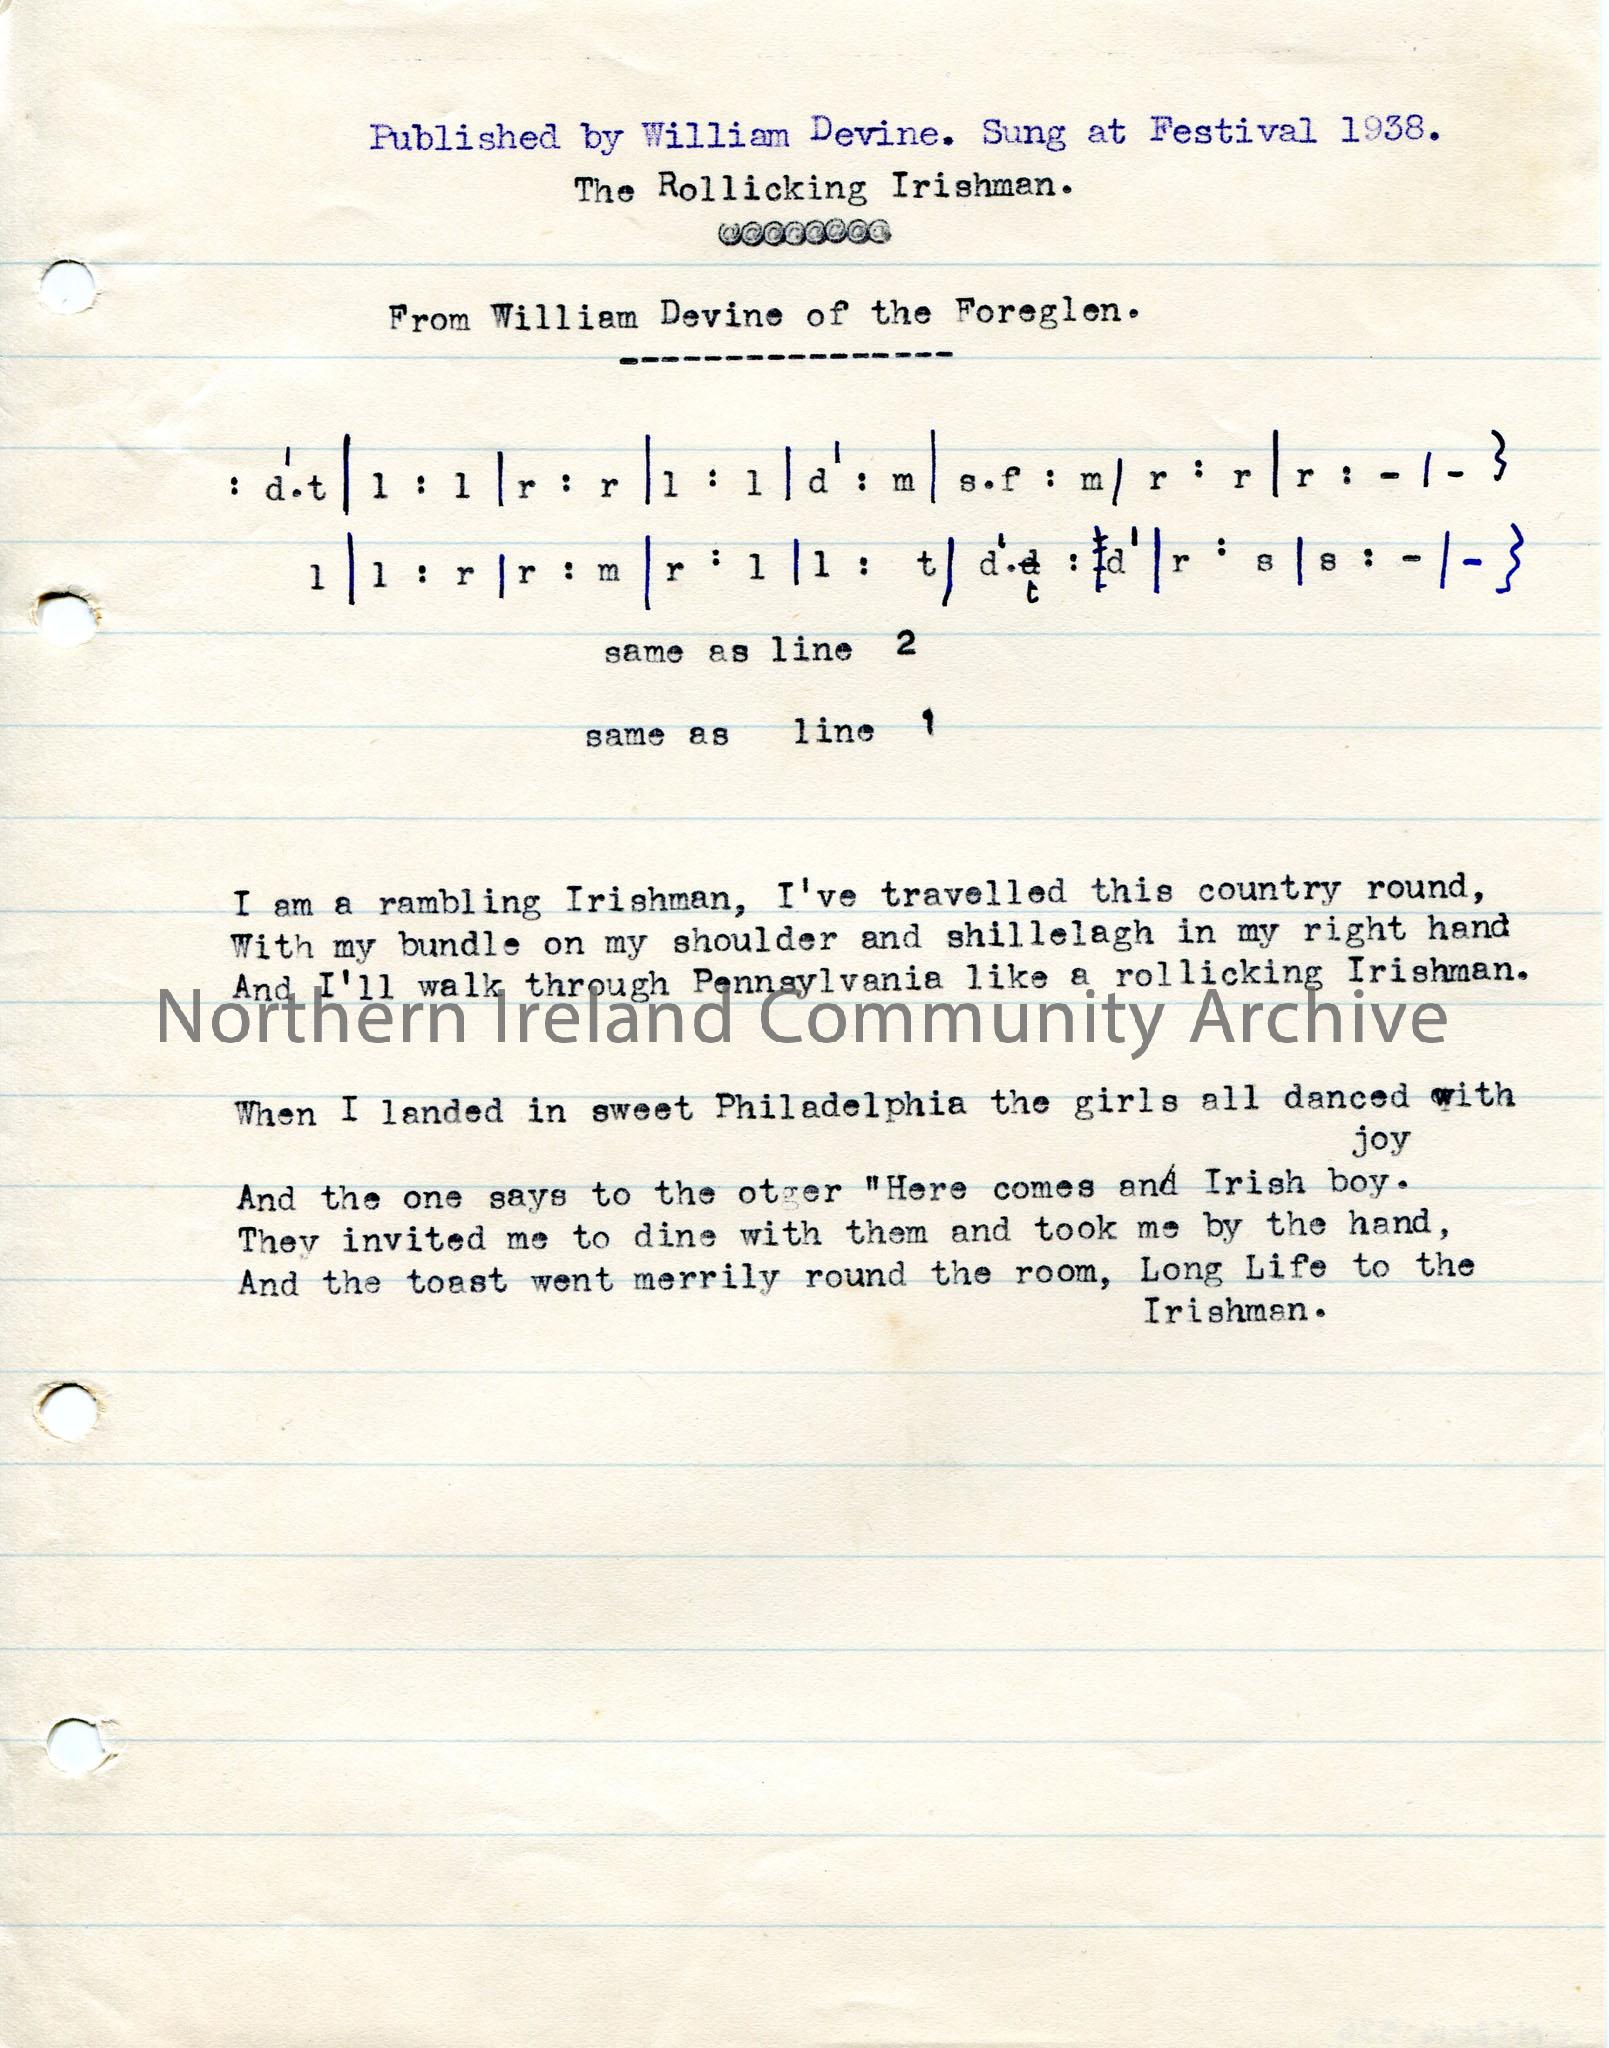 Published by William Devine. Sung at Festival 1938.
The Rollicking Irishman.
@@@@@@@@
From William Devine of the Foreglen.
----------------
: d'.t | l : l | r : r | l : l | d' : m | s.f : m / r : r | r : - / - }
l | l : r | r : m | r : l | l : t / d'.t : d' | r : s | s : - / - }
same as line 2
same as line 1
I am a rambling Irishman, I've travelled this country round,
With my bundle on my shoulder and shillelagh in my right hand
And I'll walk through Pennsylvania like a rollicking Irishman.
Northern Ireland Community Archive
When I landed in sweet Philadelphia the girls all danced with
joy
And the one says to the otger "Here comes an Irish boy.
They invited me to dine with them and took me by the hand,
And the toast went merrily round the room, Long Life to the
Irishman.